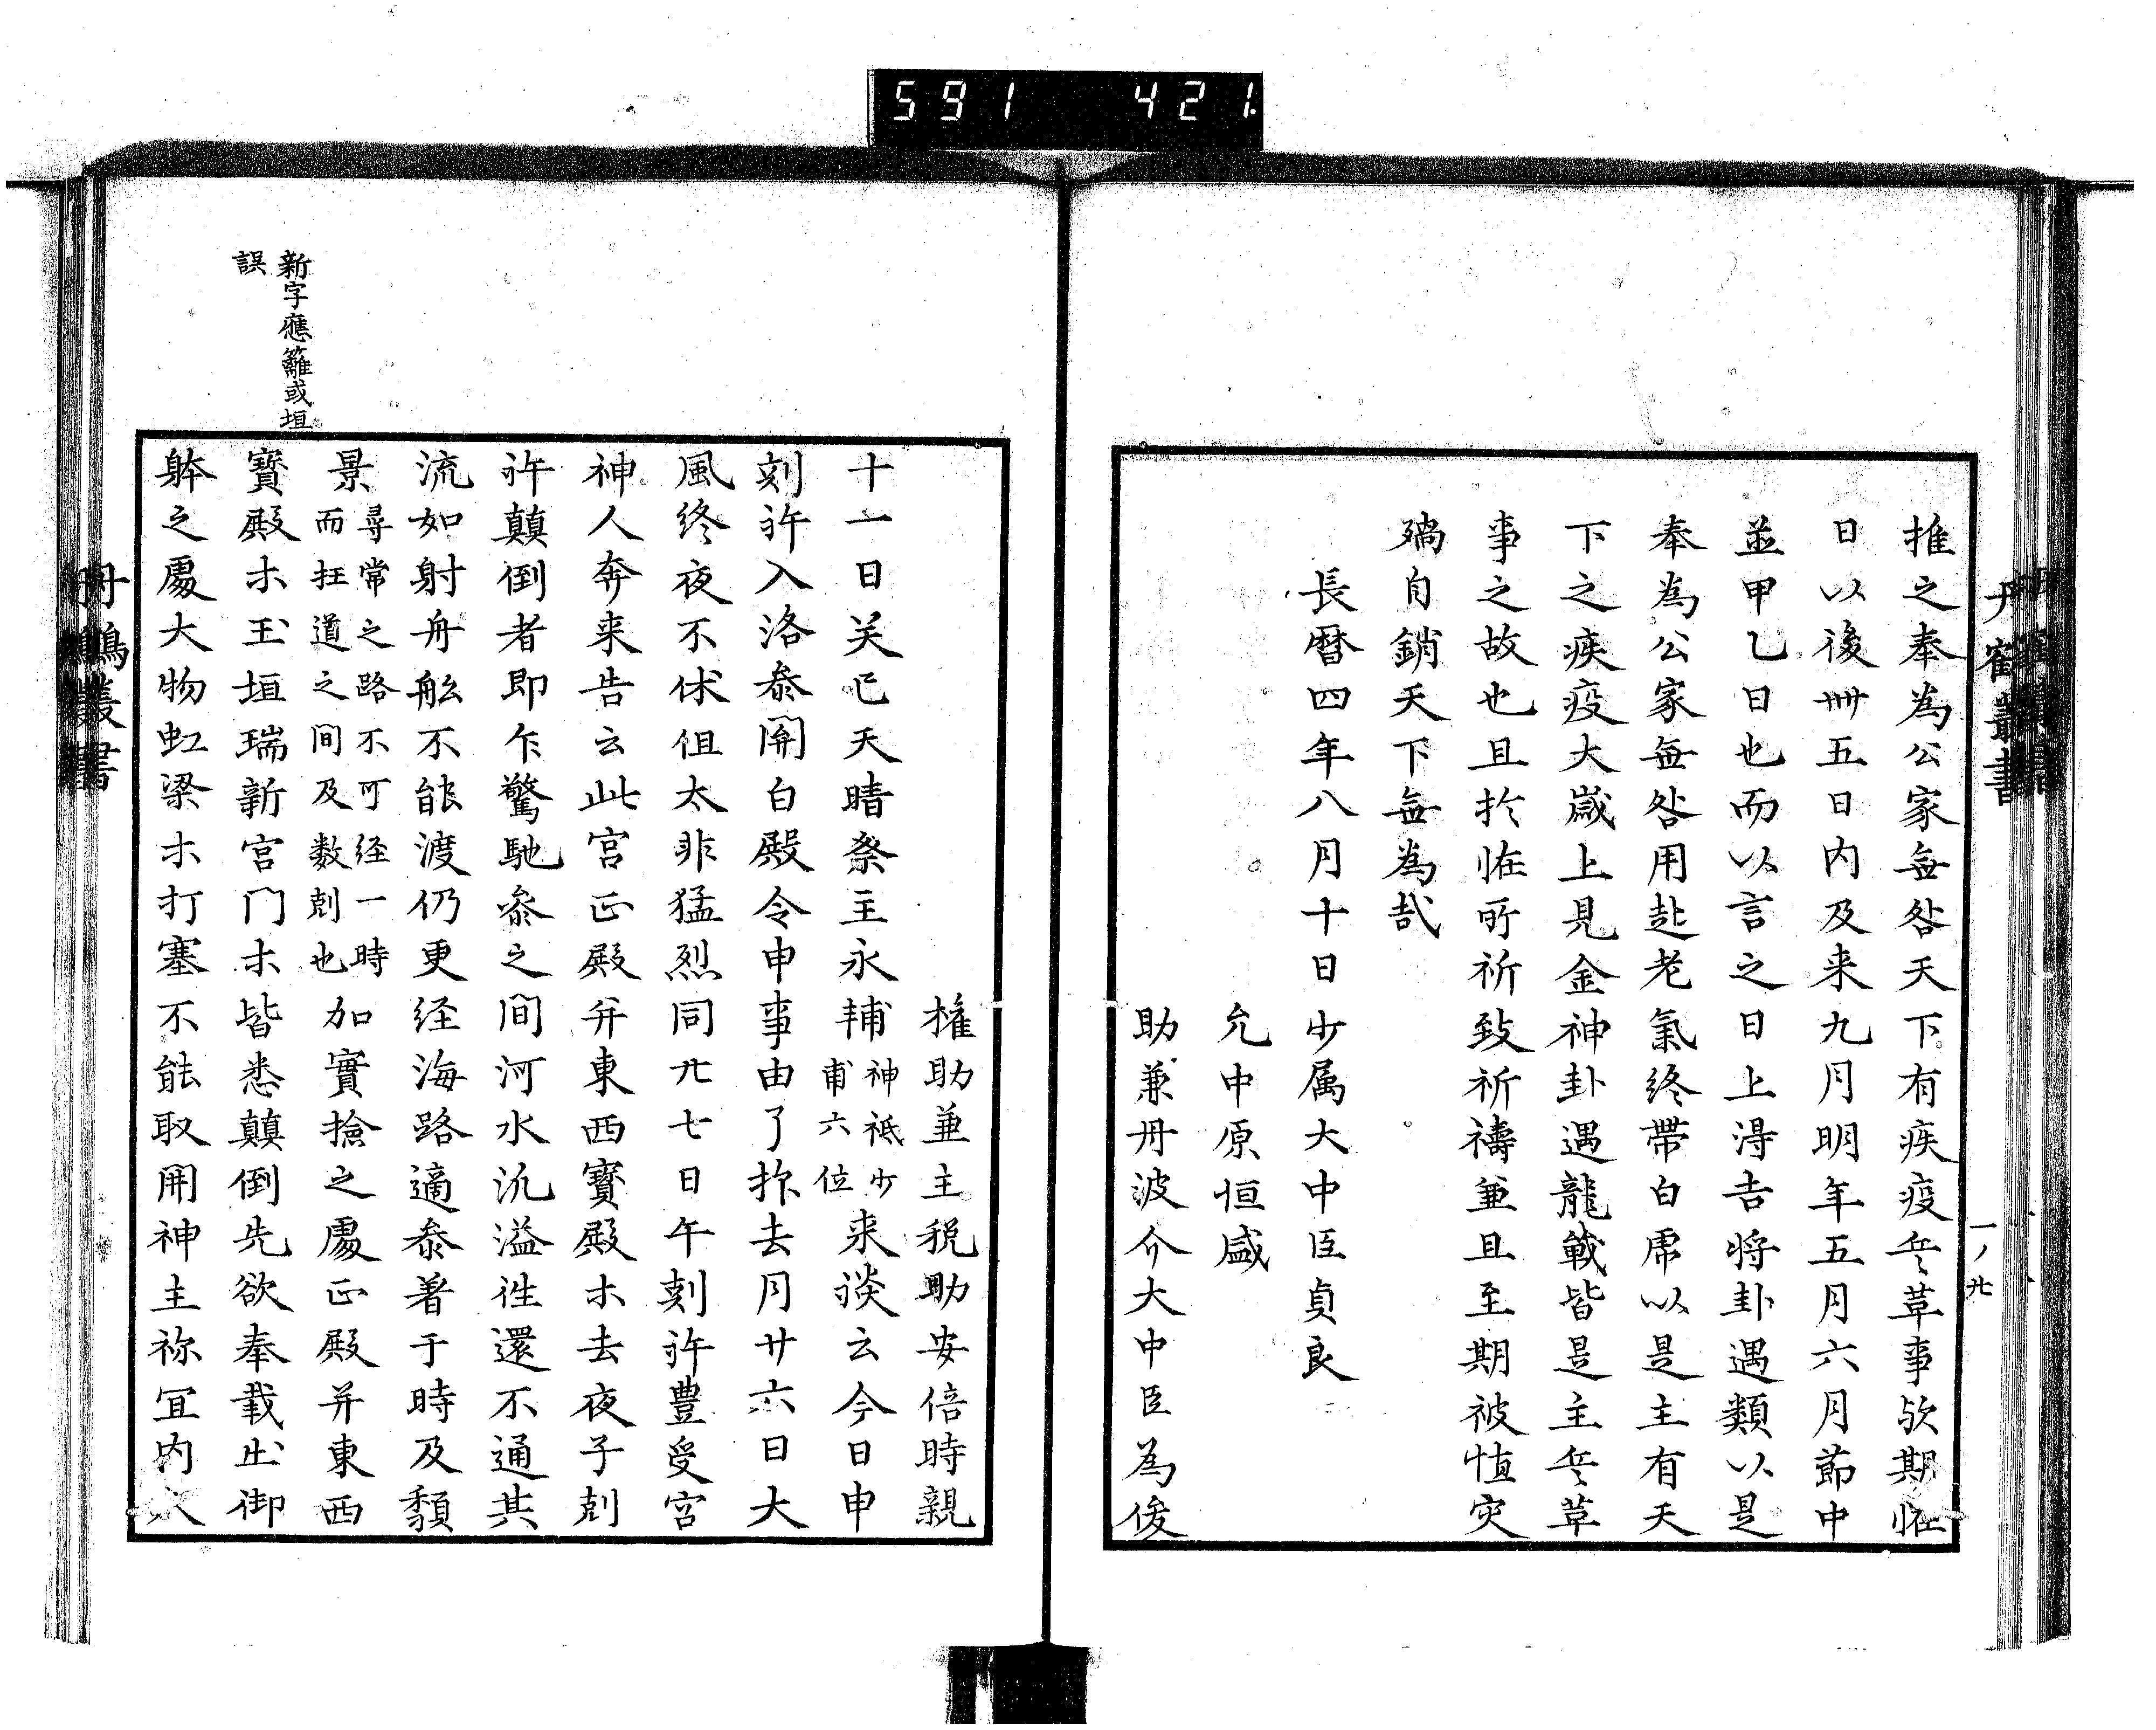 591 421
丹鶴叢書
一ノ廿
推之奉為公家無咎天下有疾疫兵革事欤期怪
日以後卌五日内及来九月明年五月六月節中
並甲乙日也而以言之日上得吉将卦遇類以是
奉為公家無咎用起老氣終帶白虎以是主有天
下之疾疫大歳上見金神卦遇龍戦皆是主兵革
事之故也且於怪所祈致祈禱兼且至期被慎灾
殃自銷天下無為哉
長暦四年八月十日少属大中臣貞良
允中原恒盛
助兼丹波介大中臣為俊
権助兼主税助安倍時親
十一日癸巳天晴祭主永輔神祇少甫六位来談云今日申
刻許入洛参関白殿令申事由了抑去月廿六日大
風終夜不休但太非猛烈同廿七日午刻許豊受宮
神人奔来告云此宮正殿并東西寶殿木去夜子剋
許顛倒者即乍驚馳参之間河水汎溢往還不通其
流如射舟舩不能渡仍更経海路適参著于時及頽
景尋常之路不可経一時而抂道之間及数剋也加實撿之處正殿并東西
寶殿木玉垣瑞新宮門木皆悉顛倒先欲奉載出御
躰之處大物虹梁木打塞不能取開神主祢冝内人
新字應籬或垣
誤
丹鶴叢書